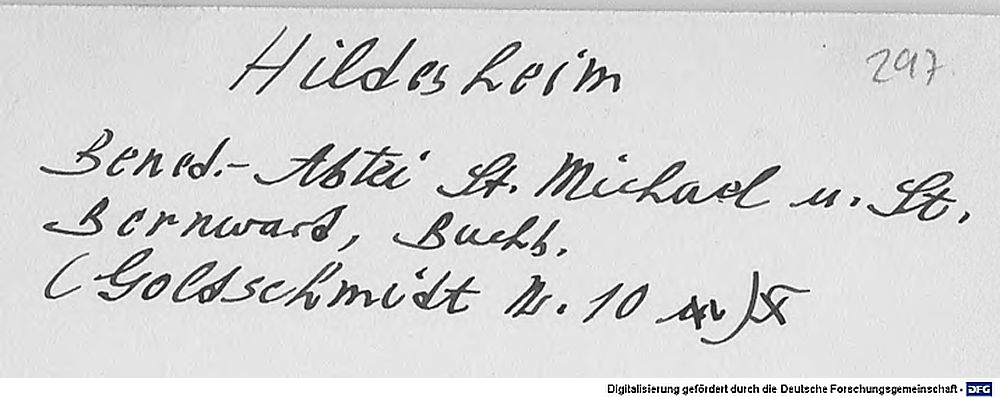 Hildesheim 297
Bened.- Abtei St. Michael u. St.
Bernward, Buchb.
(Goldschmidt Nr. 10 )
Digitalisierung gefördert durch die Deutsche Forschungsgemeinschaft - DFG